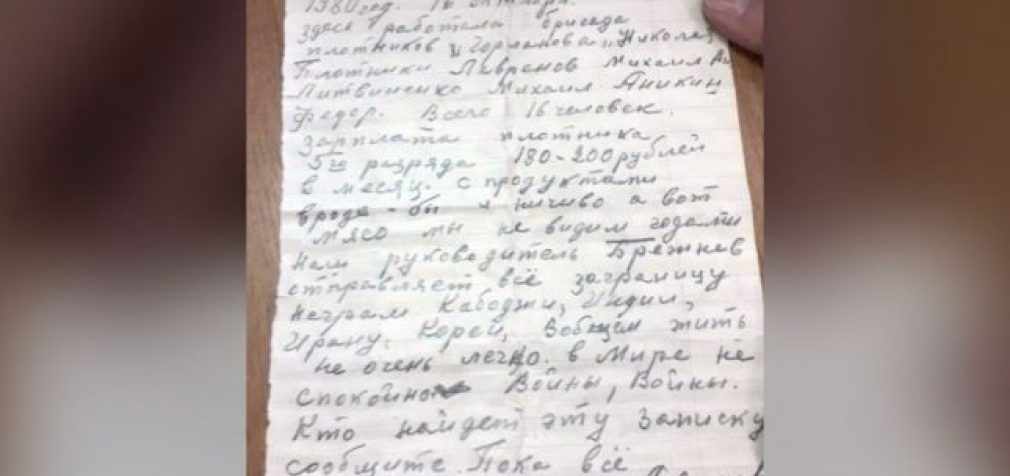 1980 год. 16 октября.
здесь работала бригада
плотников Горланова "Николая
Плотники Лавренов Михаил
Литвиненко Михаил Аникин
Федор. Всего 16 человек.
Зарплата плотника
5го разряда 180-200 рублей
в месяц. с продуктами
вроде-бы и ничиво а вот
мясо мы не видим годами
Наш руководитель Брежнев
отправляет всё заграницу
Неграм Кабоджи, Индии,
Ирану, Кореи, Вобщем жить
не очень легко. в Мире не
спокойно Войны, Войны.
Кто найдет эту Записку
сообщите. Пока всё